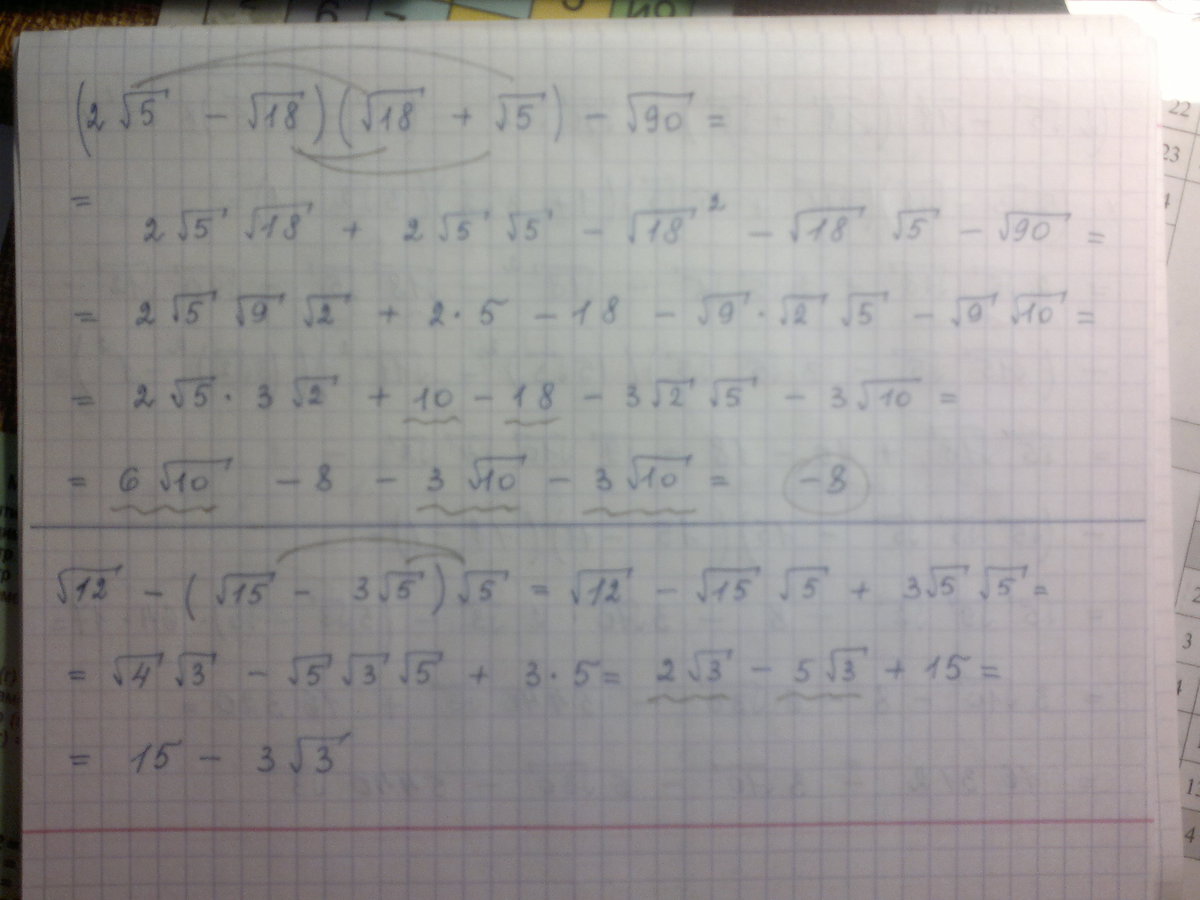 (2√5 - √18)(√18 + √5) - √90 =
=
2√5 √18 + 2√5 √5 - √18² - √18 √5 - √90 =
= 2√5 √9 √2 + 2·5 - 18 - √9·√2 √5 - √9 √10 =
= 2√5·3√2 + 10 - 18 - 3√2 √5 - 3√10 =
= 6√10 - 8 - 3√10 - 3√10 = -8
√12 - (√15 - 3√5)√5 = √12 - √15 √5 + 3√5 √5 =
= √4 √3 - √5 √3 √5 + 3·5 = 2√3 - 5√3 + 15 =
= 15 - 3√3
22
23